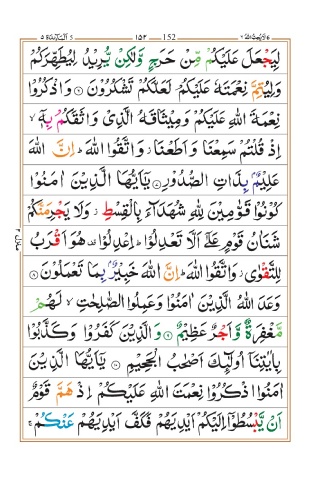 152 ١٥٢
لِيَجْعَلَ عَلَيْكُمْ مِّنْ حَرَجٍ وَّلٰكِنْ يُّرِيْدُ لِيُطَهِّرَكُمْ
وَلِيُتِمَّ نِعْمَتَهٗ عَلَيْكُمْ لَعَلَّكُمْ تَشْكُرُوْنَ ۝ وَاذْكُرُوْا
نِعْمَةَ اللّٰهِ عَلَيْكُمْ وَمِيْثَاقَهُ الَّذِىْ وَاثَقَكُمْ بِهٖٓ ۙ
اِذْ قُلْتُمْ سَمِعْنَا وَاَطَعْنَا ؗ وَاتَّقُوا اللّٰهَ ؕ اِنَّ اللّٰهَ
عَلِيْمٌۢ بِذَاتِ الصُّدُوْرِ ۝ يٰۤاَيُّهَا الَّذِيْنَ اٰمَنُوْا
كُوْنُوْا قَوّٰمِيْنَ لِلّٰهِ شُهَدَآءَ بِالْقِسْطِ ؗ وَلَا يَجْرِمَنَّكُمْ
شَنَاٰنُ قَوْمٍ عَلٰٓى اَلَّا تَعْدِلُوْا ؕ اِعْدِلُوْا ۫ هُوَ اَقْرَبُ
لِلتَّقْوٰى ؗ وَاتَّقُوا اللّٰهَ ؕ اِنَّ اللّٰهَ خَبِيْرٌۢ بِمَا تَعْمَلُوْنَ ۝
وَعَدَ اللّٰهُ الَّذِيْنَ اٰمَنُوْا وَعَمِلُوا الصّٰلِحٰتِ ۙ لَهُمْ
مَّغْفِرَةٌ وَّاَجْرٌ عَظِيْمٌ ۝ وَالَّذِيْنَ كَفَرُوْا وَكَذَّبُوْا
بِاٰيٰتِنَاۤ اُولٰٓئِكَ اَصْحٰبُ الْجَحِيْمِ ۝ يٰۤاَيُّهَا الَّذِيْنَ
اٰمَنُوا اذْكُرُوْا نِعْمَتَ اللّٰهِ عَلَيْكُمْ اِذْ هَمَّ قَوْمٌ
اَنْ يَّبْسُطُوْٓا اِلَيْكُمْ اَيْدِيَهُمْ فَكَفَّ اَيْدِيَهُمْ عَنْكُمْ ۚ